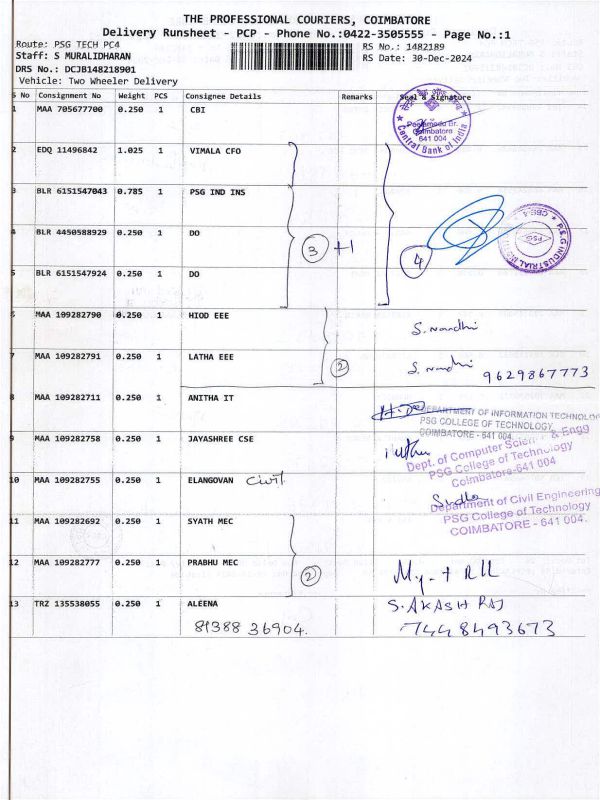 THE PROFESSIONAL COURIERS, COIMBATORE
Delivery Runsheet - PCP - Phone No.:0422-3505555 - Page No.:1
Route: PSG TECH PC4
RS No.: 1482189
Staff: S MURALIDHARAN
RS Date: 30-Dec-2024
DRS No.: DCJB148218901
Vehicle: Two Wheeler Delivery
S No Consignment No Weight PCS Consignee Details Remarks Seal & Signature
1 MAA 705677700 0.250 1 CBI
Peelamedu Br.
Coimbatore
641 004
Central Bank of India
2 EDQ 11496842 1.025 1 VIMALA CFO
3 BLR 6151547043 0.785 1 PSG IND INS
4 BLR 4450588929 0.250 1 DO
3 +1
4
PSG
P.S.G INDUSTRIAL
5 BLR 6151547924 0.250 1 DO
6 MAA 109282790 0.250 1 HIOD EEE
S. nandhi
7 MAA 109282791 0.250 1 LATHA EEE
2
S. nandhi
9629867773
8 MAA 109282711 0.250 1 ANITHA IT
DEPARTMENT OF INFORMATION TECHNOLOGY
PSG COLLEGE OF TECHNOLOGY
COIMBATORE - 641 004.
9 MAA 109282758 0.250 1 JAYASHREE CSE
Dept. of Computer Science & Engg
PSG College of Technology
Coimbatore-641 004
10 MAA 109282755 0.250 1 ELANGOVAN Civil
Sudha
Department of Civil Engineering
PSG College of Technology
COIMBATORE - 641 004.
11 MAA 109282692 0.250 1 SYATH MEC
12 MAA 109282777 0.250 1 PRABHU MEC
2
13 TRZ 135538055 0.250 1 ALEENA
S. AKASH RAJ
81388 36904.
7448493673